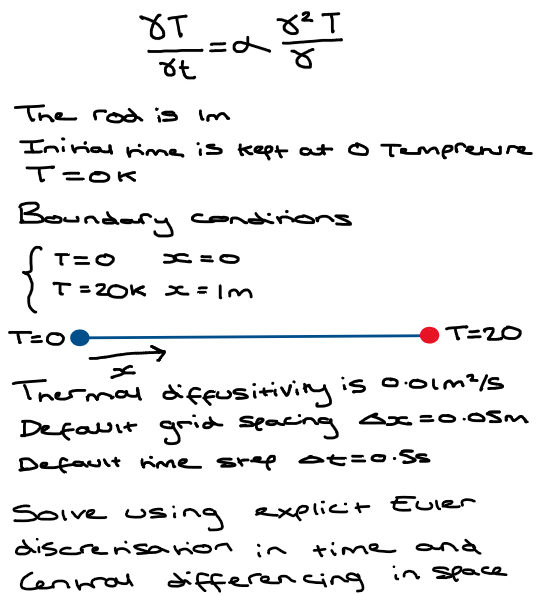 γT/γt = α γ²T/γ
The rod is 1m
Initial time is kept at 0 Temprerure
T = 0K
Boundary conditions
{ T=0 x=0
T=20K x=1m
T=0 T=20
x
Thermal diffusitivity is 0.01m²/s
Default grid spacing Δx=0.05m
Default time step Δt=0.5s
Solve using explicit Euler
discretisation in time and
Central differencing in space